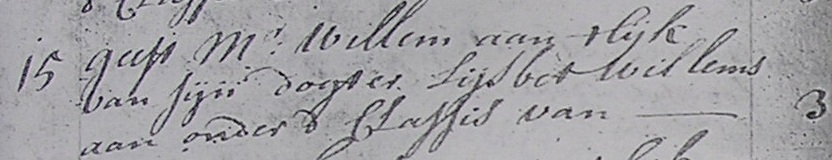 15 geeft Mr. Willem aan t lijk
van sijn dogter Lijsbet Willems
aan onder d Classis van — 3